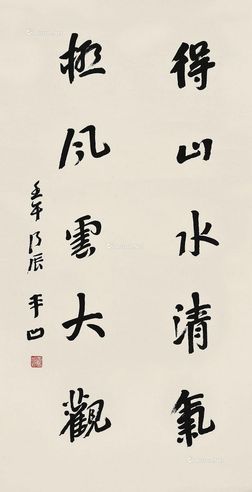 得山水清氣
極風雲大觀
壬午 辰 平凹